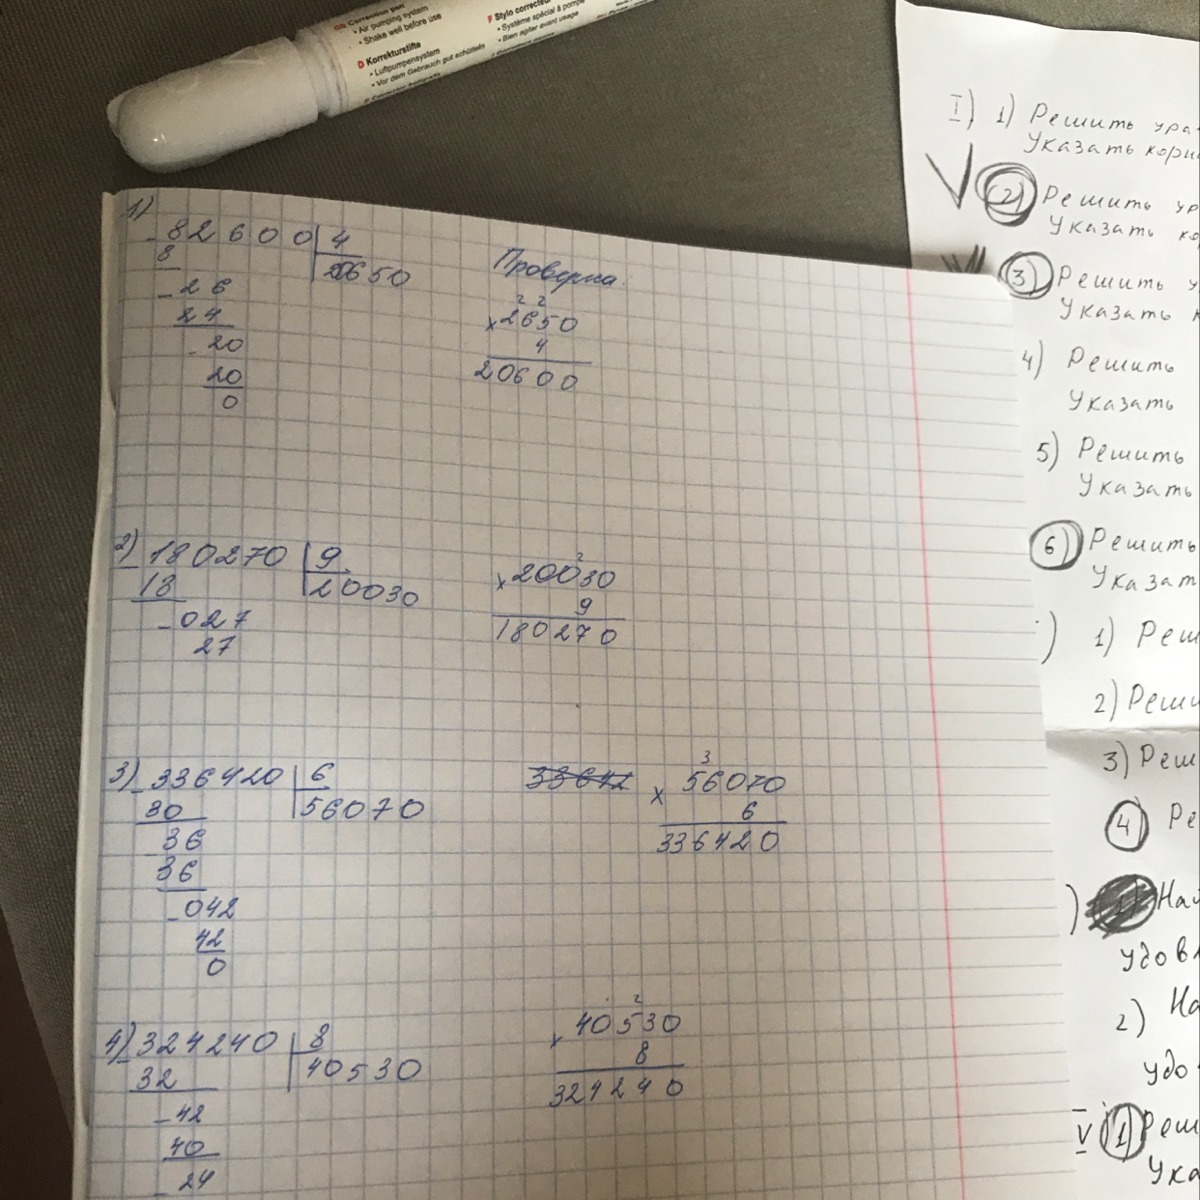 GB Correction pen
• Air pumping system
• Shake well before use
D Korrekturstifte
• Luftpumpensystem
• Vor dem Gebrauch gut schütteln
F Stylo correcteur
• Système spécial à pompe
• Bien agiter avant usage
1)
- 82600 | 4
8 20650
- 26
24
- 20
20
0
Проверка:
2 2
× 2650
4
20600
2) - 180270 | 9
18 20030
- 027
27
2
× 20030
9
180270
3) - 336420 | 6
30 56070
36
36
- 042
42
0
33642
3
× 56070
6
336420
4) - 324240 | 8
32 40530
- 42
40
- 24
2
× 40530
8
324240
I) 1) Решить ура
Указать корн
(2) Решить ур
Указать ко
3) Решить у
Указать к
4) Решить
Указать
5) Решить
Указать
6) Решить
Указат
) 1) Реш
2) Реши
3) Реш
4) Ре
) 1) Най
удовл
2) На
удо
V 1) Реш
Ука